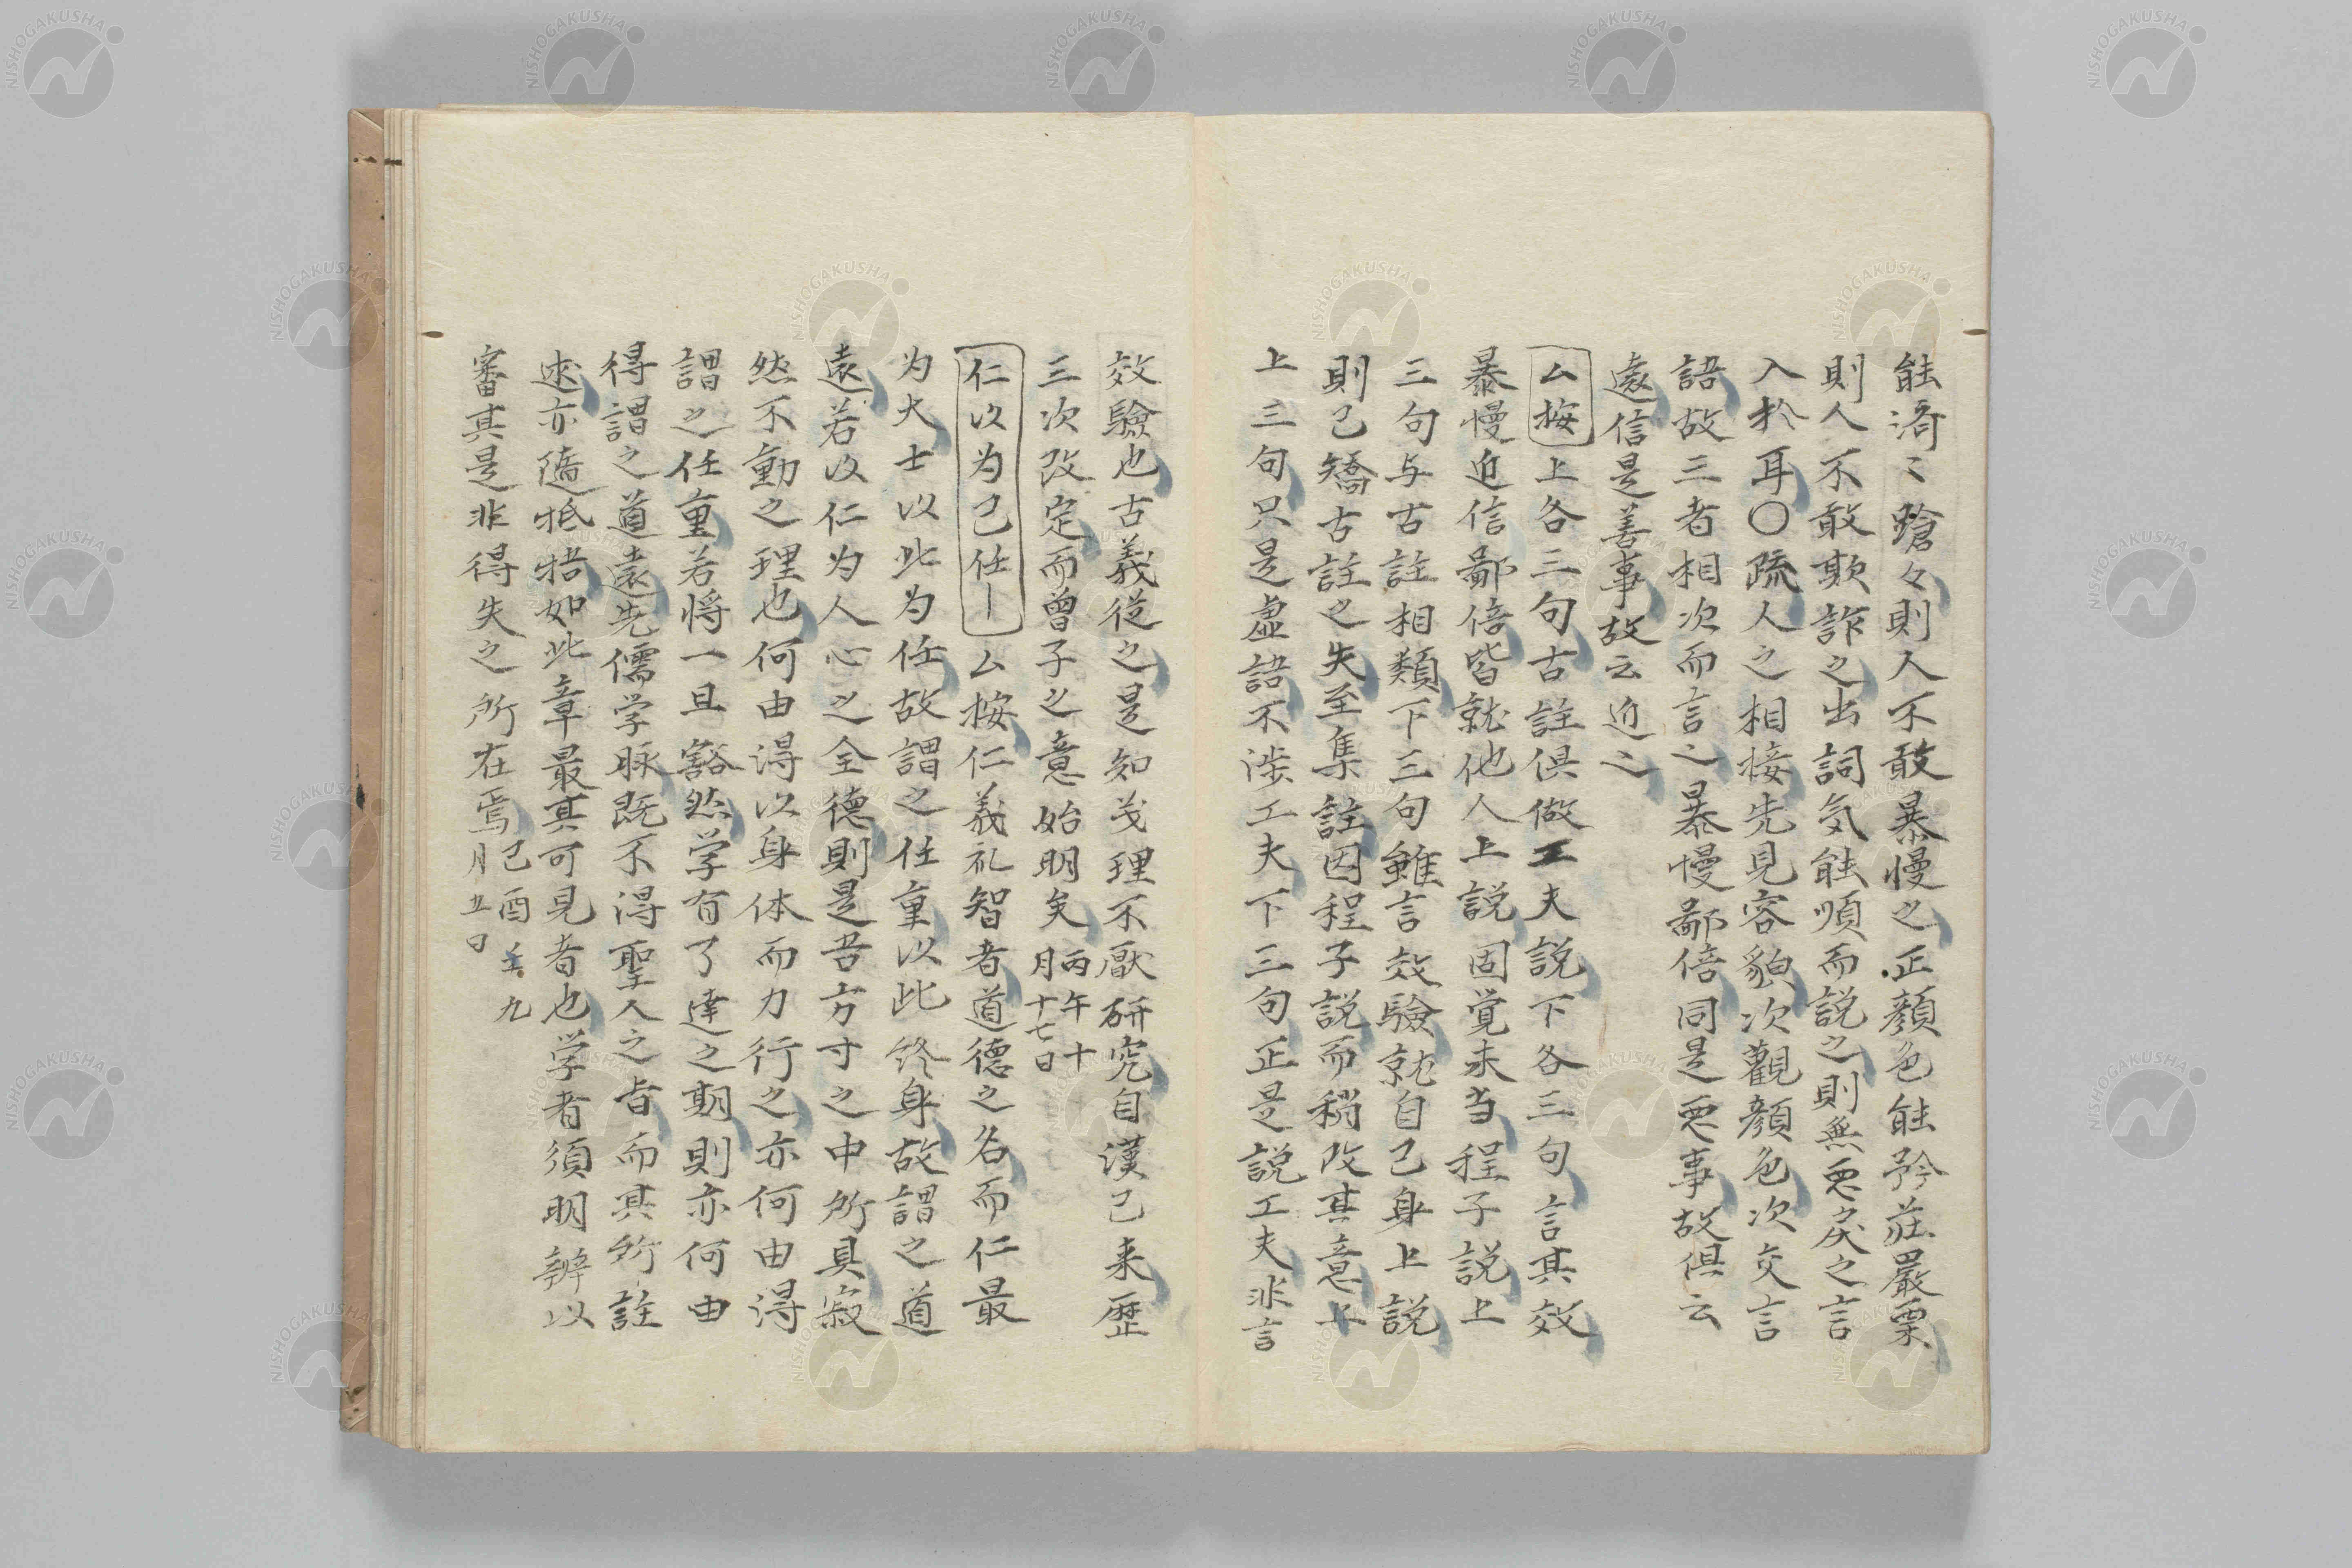 能済〻蹌々則人不敢暴慢之正顔色能矜荘嚴栗
則人不敢欺詐之出詞気能順而説之則無悪戻之言
入於耳〇疏人之相接先見容貌次觀顔色次交言
語故三者相次而言之暴慢鄙倍同是悪事故俱云
遠信是善事故云近之
厶按上各三句古註俱做工夫説下各三句言其效
暴慢近信鄙倍皆就他人上説固覚未当程子説上
三句与古註相類下三句雖言效驗就自己身上説
則已矯古註之失至集註因程子説而稍改其意上
上三句只是虚語不渉工夫下三句正是説工夫非言
效驗也古義従之是知義理不厭研究自漢已来歴
三次改定而曽子之意始明矣丙午十
月十七日
仁以为己任｜厶按仁義礼智者道德之名而仁最
为大士以此为任故謂之任重以此终身故謂之道
遠若以仁为人心之全德則是吾方寸之中所具寂
然不動之理也何由得以身体而力行之亦何由得
謂之任重若将一旦豁然学有了達之期則亦何由
得謂之道遠先儒学脉既不得聖人之旨而其所註
述亦随牴牾如此章最其可見者也学者須明辨以
審其是非得失之所在焉己酉九
月五日